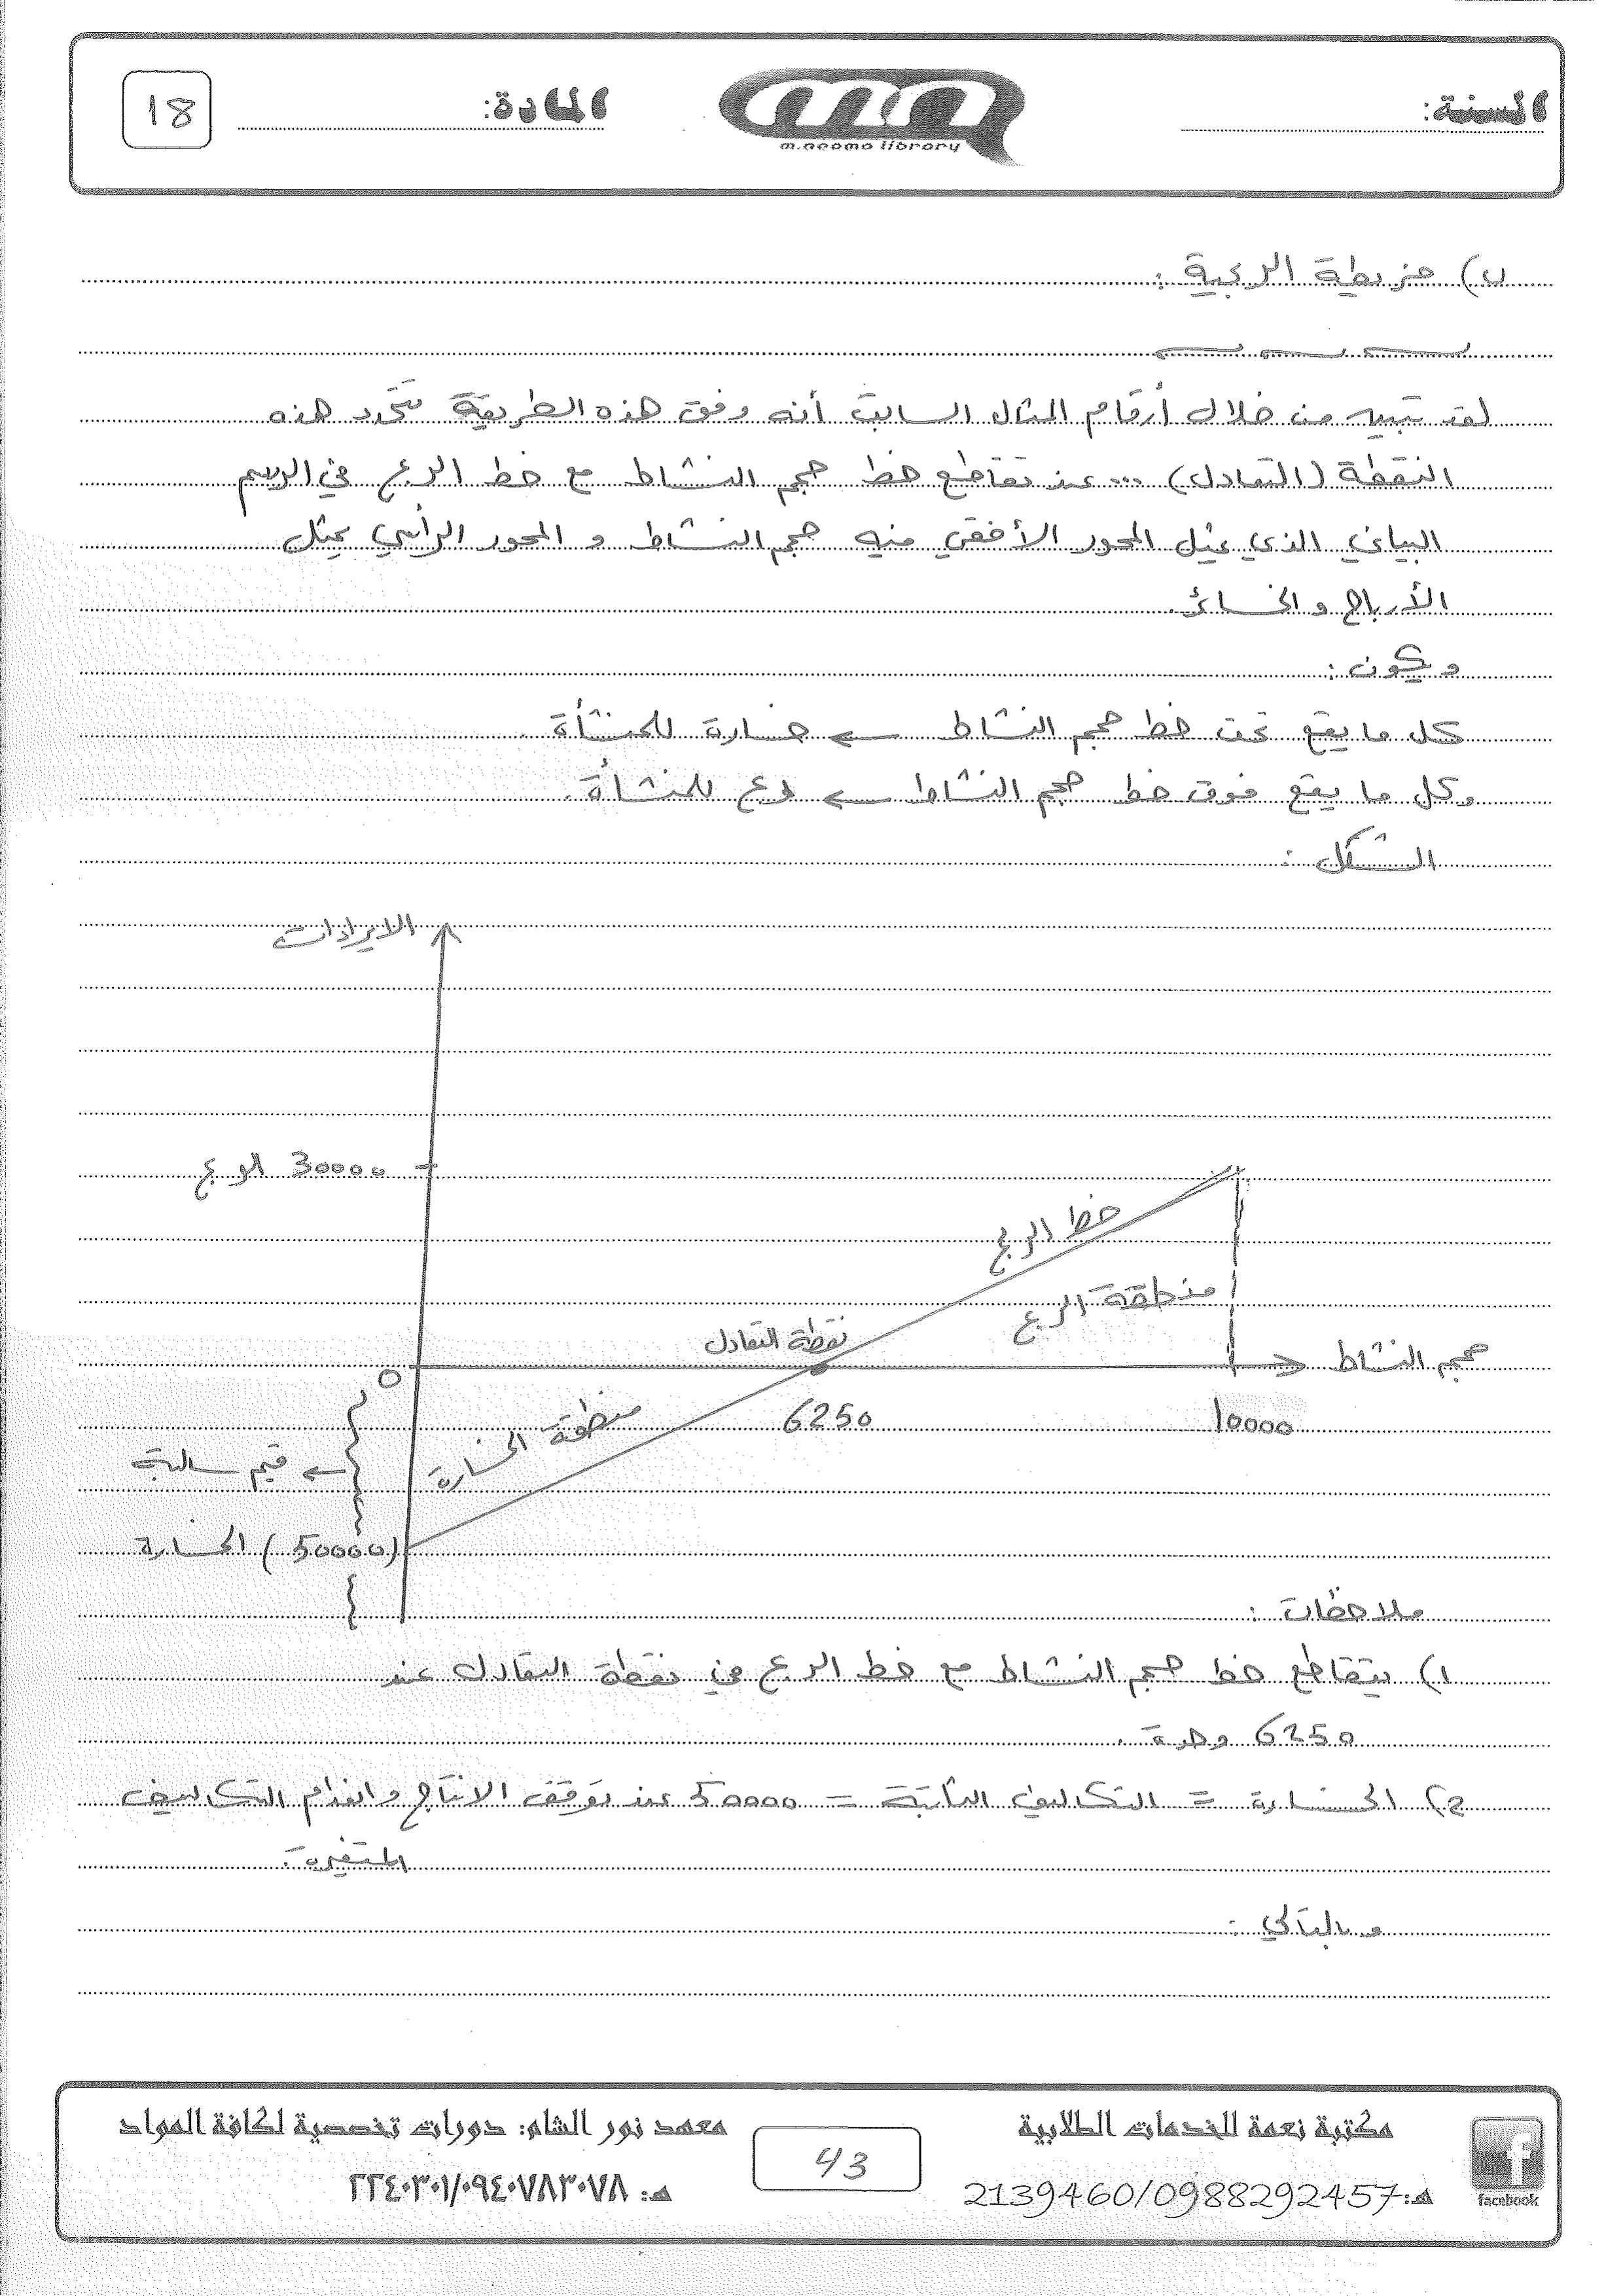 السنة:
m.neama library
المادة:
18
ب) خريطة الربحية :
لقد تبين من خلال أرقام المثال السابق أنه وفق هذه الطريقة تتحدد هذه
النقطة (التعادل) ... عند تقاطع خط حجم النشاط مع خط الربح في الرسم
البياني الذي يمثل المحور الأفقي فيه حجم النشاط و المحور الرأسي يمثل
الأرباح والخسائر.
ويكون :
كل ما يقع تحت خط حجم النشاط ← خسارة للمنشأة .
وكل ما يقع فوق خط حجم النشاط ← ربح للمنشأة .
الشكل :
الايرادات
30000 الربح
خط الربح
منطقة الربح
نقطة التعادل
حجم النشاط
0
6250
10000
منطقة الخسارة
← قيم سالبة
(50000) الخسارة
ملاحظات :
1) يتقاطع خط حجم النشاط مع خط الربح في نقطة التعادل عند
6250 وحدة .
2) الخسارة = التكاليف الثابتة = 50000 عند توقف الانتاج وانعدام التكاليف
المتغيرة .
وبالتالي :
مكتبة نعمة للخدمات الطلابية
هـ: 2139460/0988292457
facebook
43
معهد نور الشام: دورات تخصصية لكافة المواد
هـ: ٢٢٤٠٣٠١/٠٩٤٠٧٨٣٠٧٨